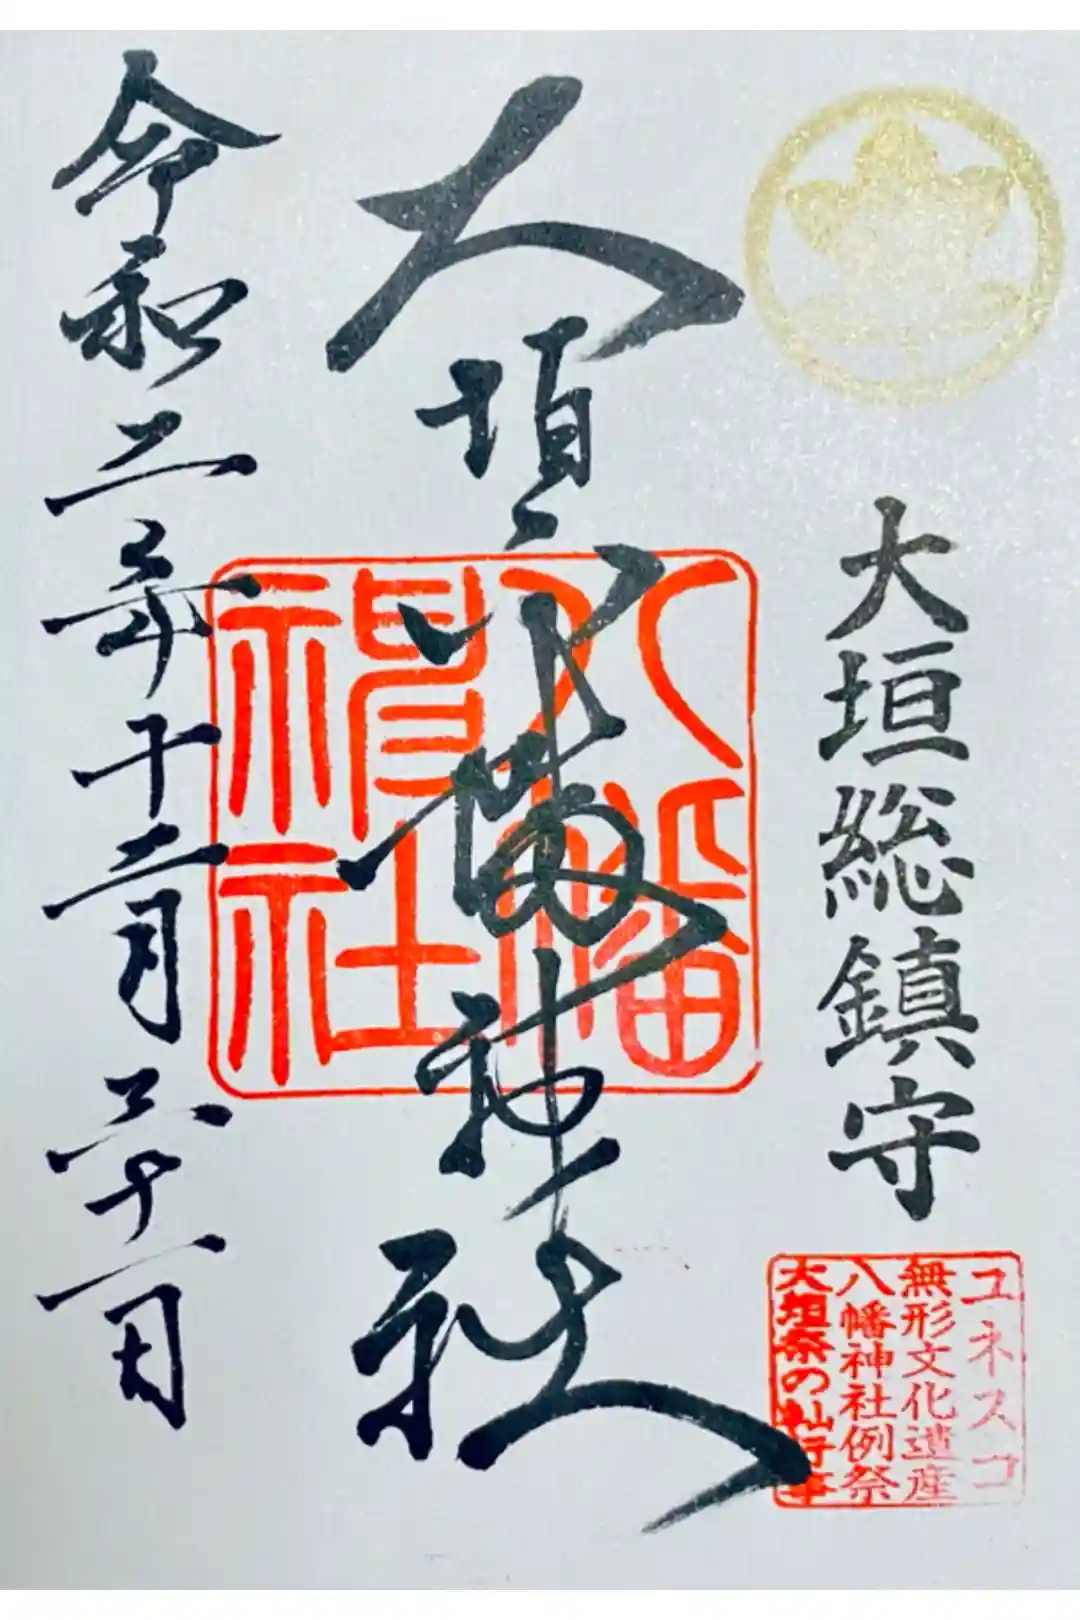 大垣総鎮守
ユネスコ
無形文化遺産
八幡神社例祭
大垣祭の軕行事
大垣八幡神社
八幡
神社
令和二年十二月二十一日